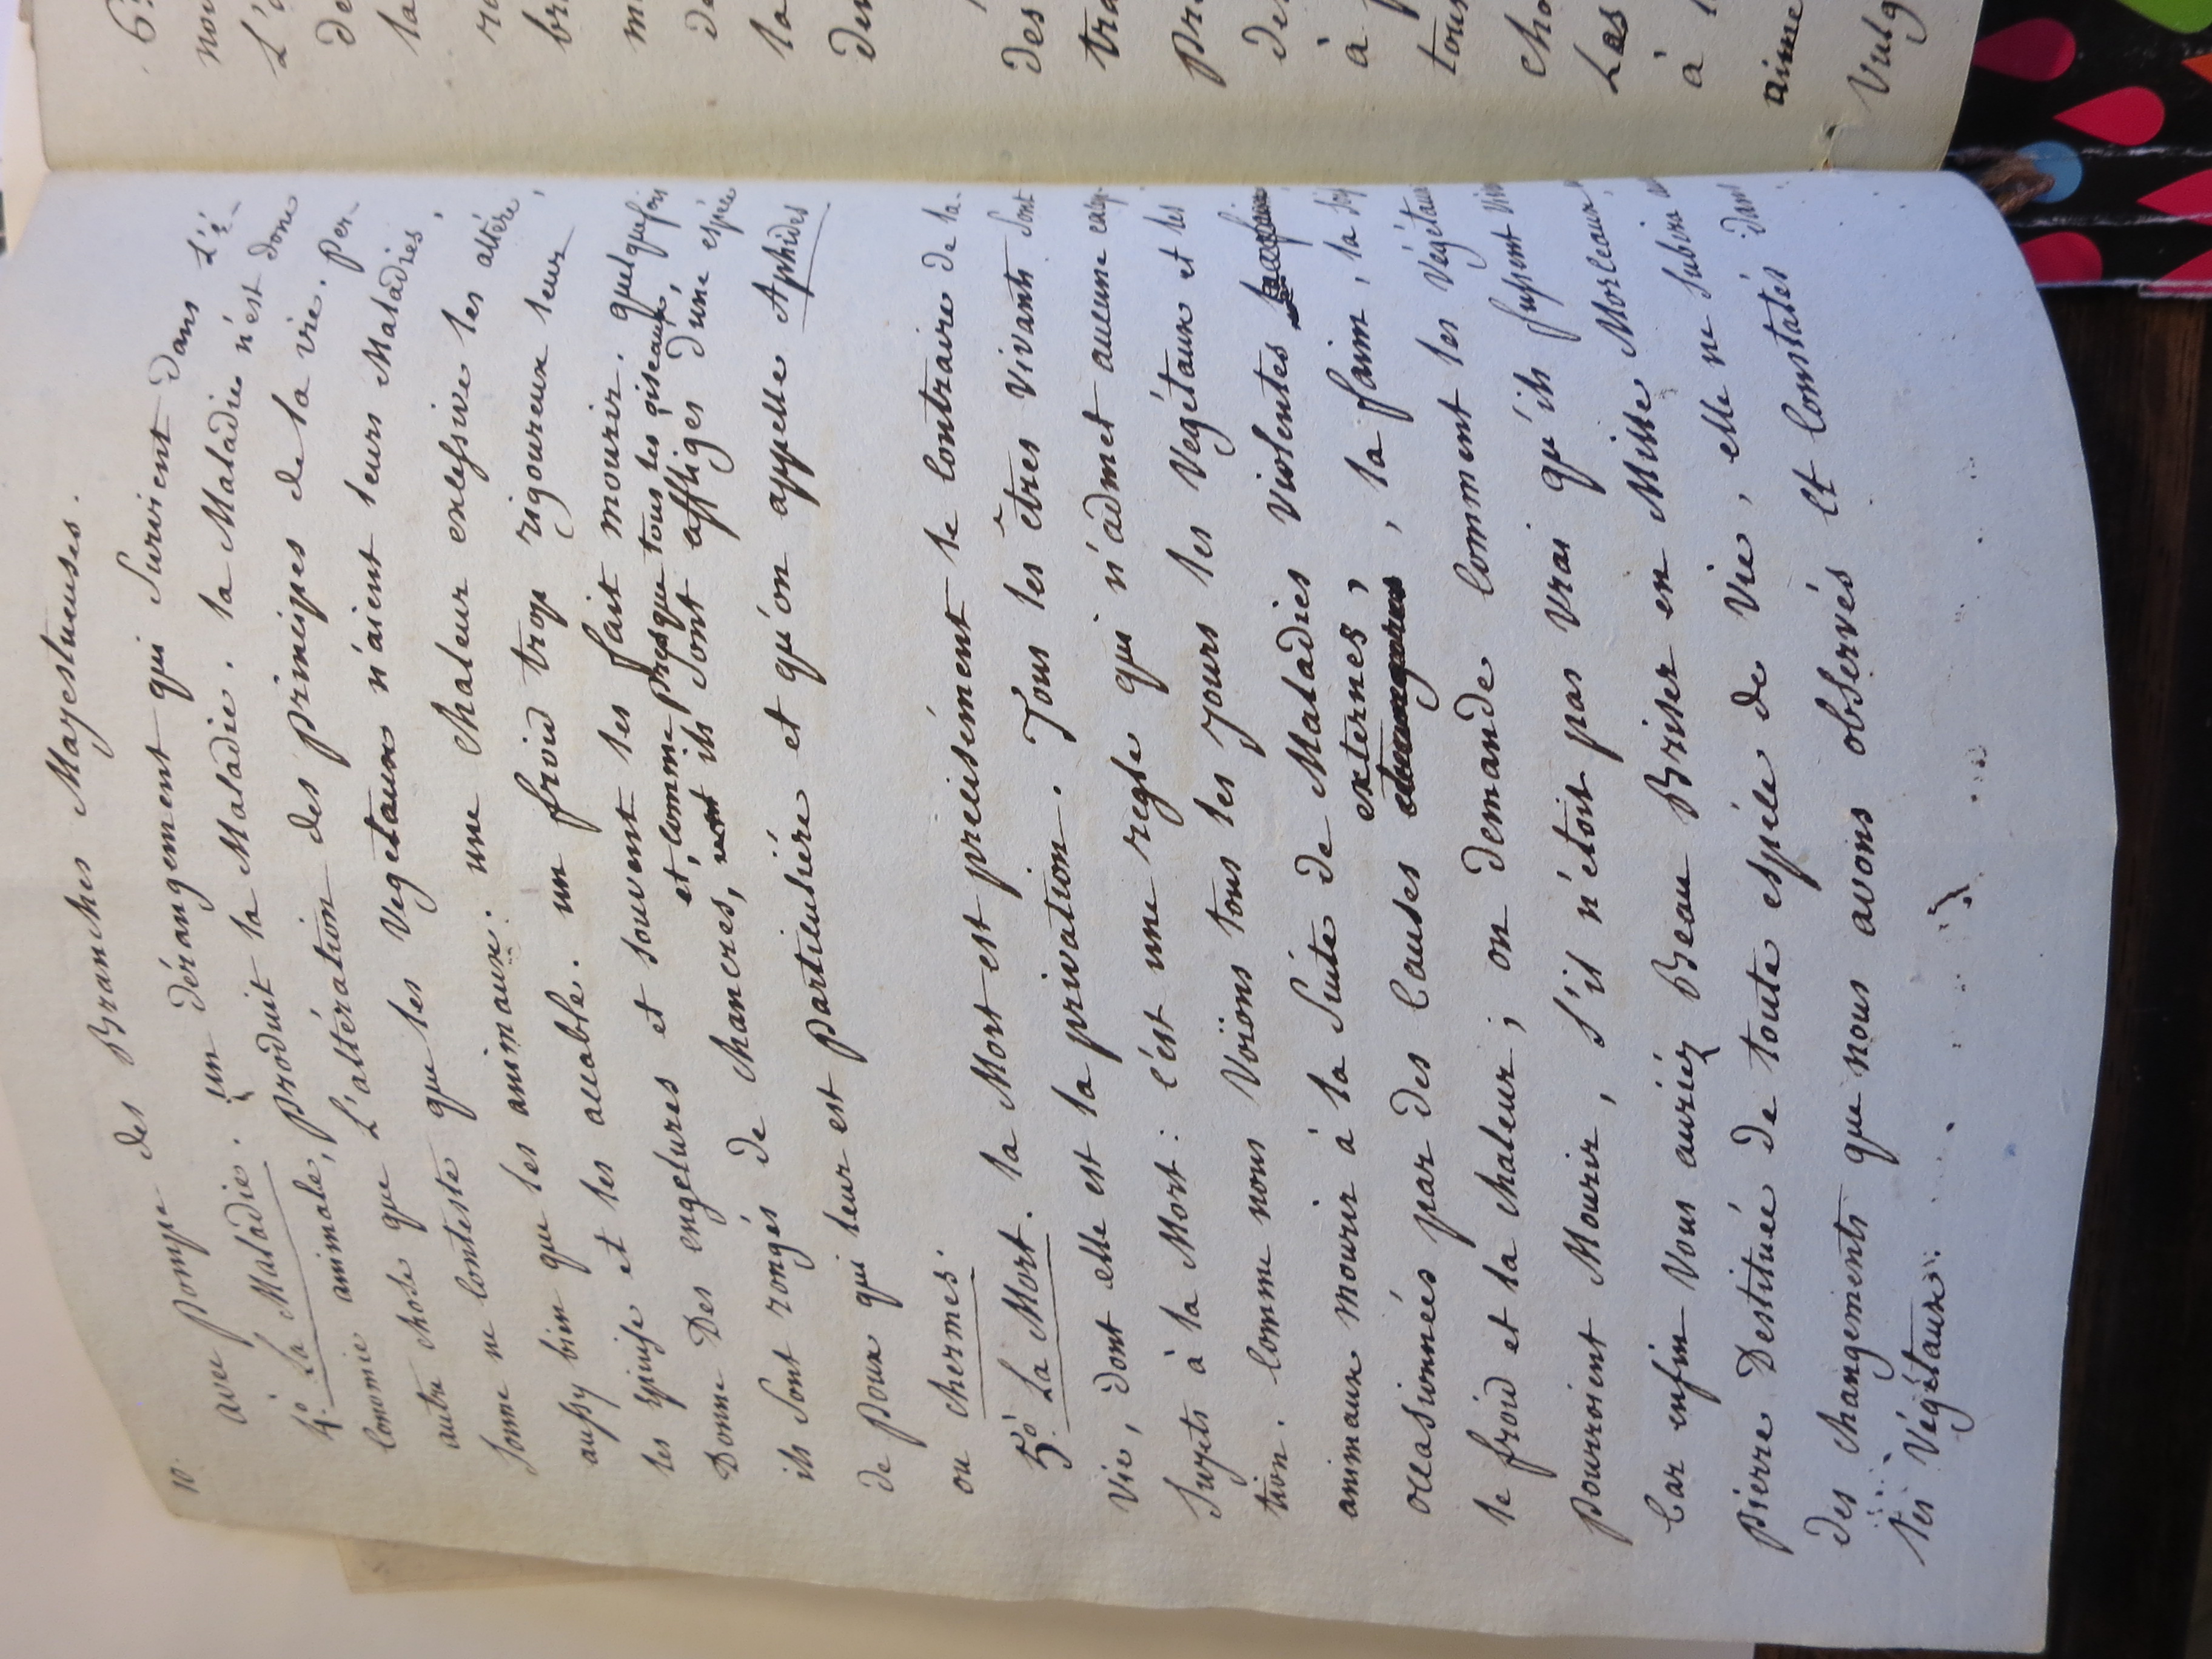 10.
avec pompe des Branches Majestueuses.
4.° La Maladie. un dérangement qui Survient dans L'é-
conomie animale, produit la Maladie. la Maladie n'est donc
autre chose que L'altération des principes de la vie. per-
sonne ne conteste que les Vegetaux n'aient leurs Maladies,
aussy bien que les animaux: une chaleur excessive les altére,
les épuise et les accable. un froid trop rigoureux leur
Donne Des engelures et souvent les fait mourir. quelquefois
et, comme presque tous les oiseaux,
ils Sont rongés de chancres, ils Sont affligés d'une espéce
de poux qui leur est particuliére et qu'on appelle Aphides
ou chermes.
5.° La Mort. la Mort est precisément le contraire de la
Vie, dont elle est la privation. Tous les êtres vivants Sont
Sujets à la Mort: c'est une regle qui n'admet aucune excep-
tion. comme nous Voïons tous les jours les Vegétaux et les
animaux mourir à la Suite de Maladies violentes
externes,
occasionnées par des causes , la faim, la soif
le froid et la chaleur; on demande comment les Végétaux
pourroient Mourir, s'il n'étoit pas vrai qu'ils fussent
Car enfin Vous auriéz Beau Briser en Mille Morceaux
pierre Destituée de toute espéce de vie, elle ne Subira
des changements que nous avons observés et constatés dans
les Végétaux.
6.°
nou
L'a
de
la
br
m
de
la
des
des
tra
pr
de
à p
tous
cho
Les
à l
aime
Vulg